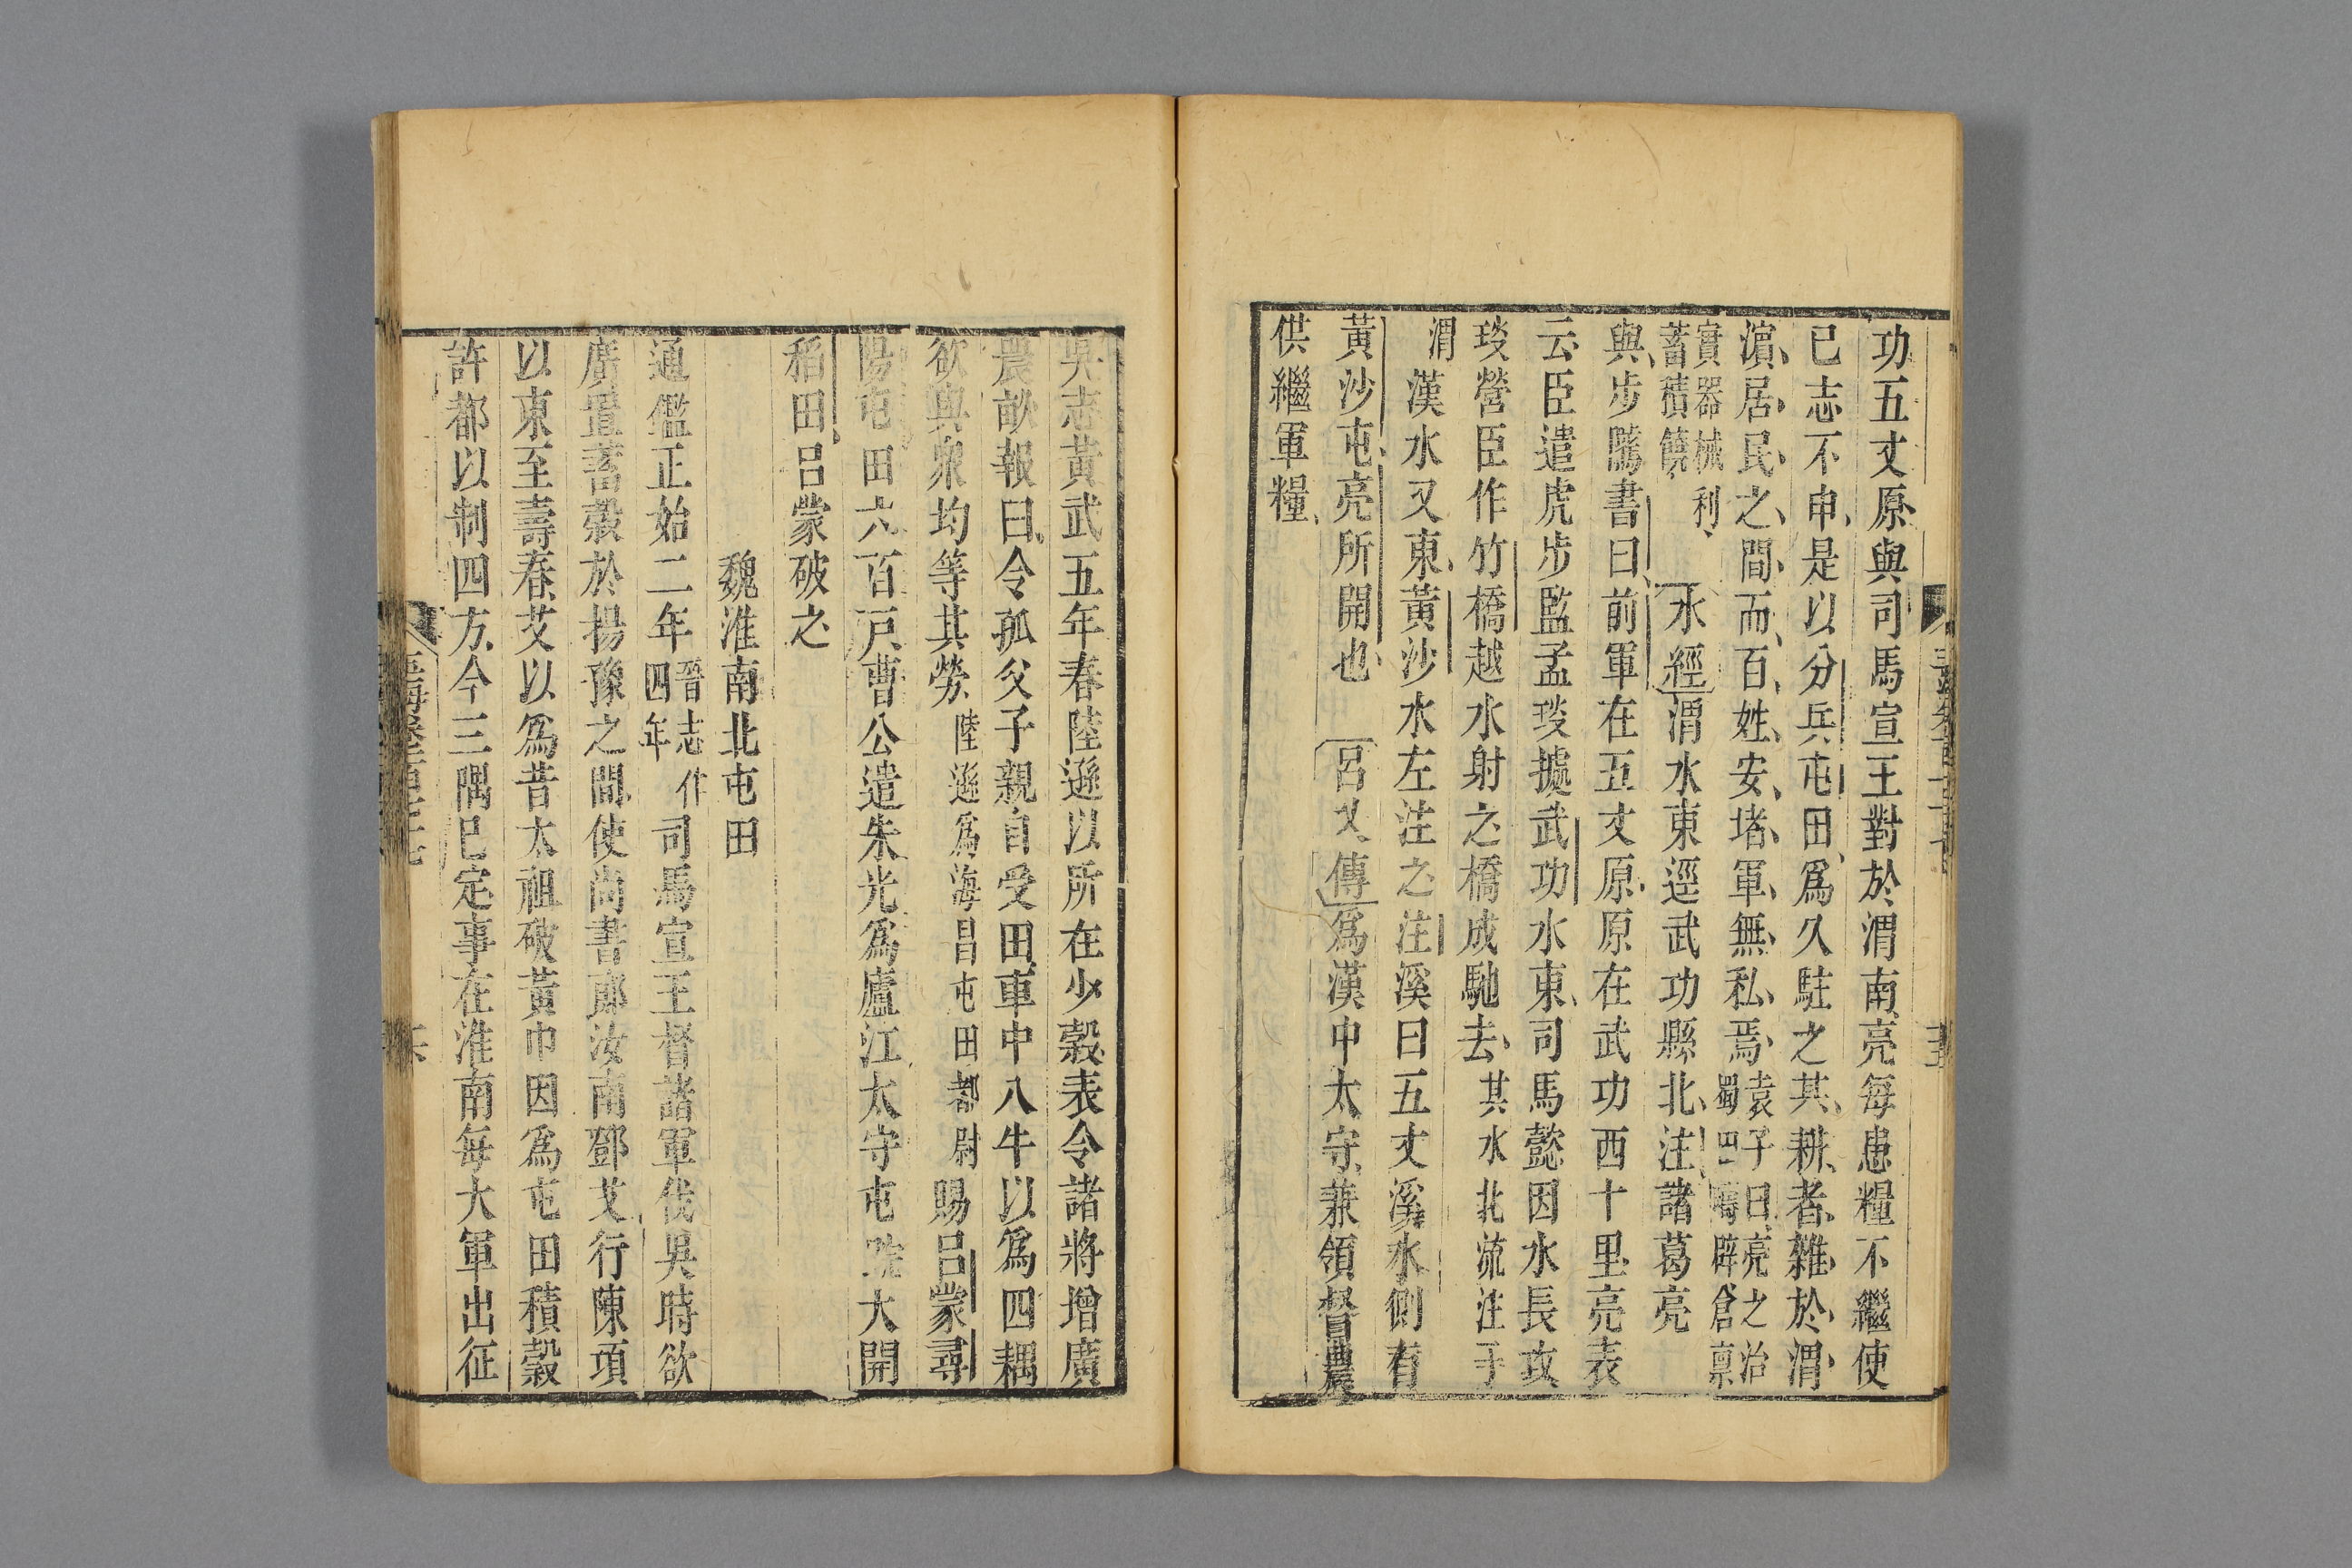 功五丈原與司馬宣王對於渭南亮每患糧不繼使
已志不申是以分兵屯田爲久駐之其耕者雜於渭
濵居民之間而百姓安堵軍無私焉袁子曰亮之治蜀田疇辟倉禀
實器械利蓄積饒水經渭水東逕武功縣北注諸葛亮
與步騭書曰前軍在五丈原原在武功西十里亮表
云臣遣虎步監孟琰據武功水東司馬懿因水長攻
琰營臣作竹橋越水射之橋成馳去其水北流注于
渭漢水又東黃沙水左注之注溪曰五丈溪水側有
黃沙屯亮所開也呂乂傳爲漢中太守兼領督農
供繼軍糧
吳志黃武五年春陸遜以所在少穀表令諸將增廣
農畝報曰令孤父子親自受田車中八牛以爲四耦
欲與衆均等其勞陸遜爲海昌屯田都尉賜呂蒙尋
陽屯田六百戸曹公遣朱光爲廬江太守屯皖大開
稻田呂蒙破之
魏淮南北屯田
通鑑正始二年晉志作四年司馬宣王督諸軍伐吳時欲
廣置蓄穀於揚豫之間使尚書郎汝南鄧艾行陳項
以東至壽春艾以爲昔太祖破黃巾因爲屯田積穀
許都以制四方今三隅已定事在淮南每大軍出征